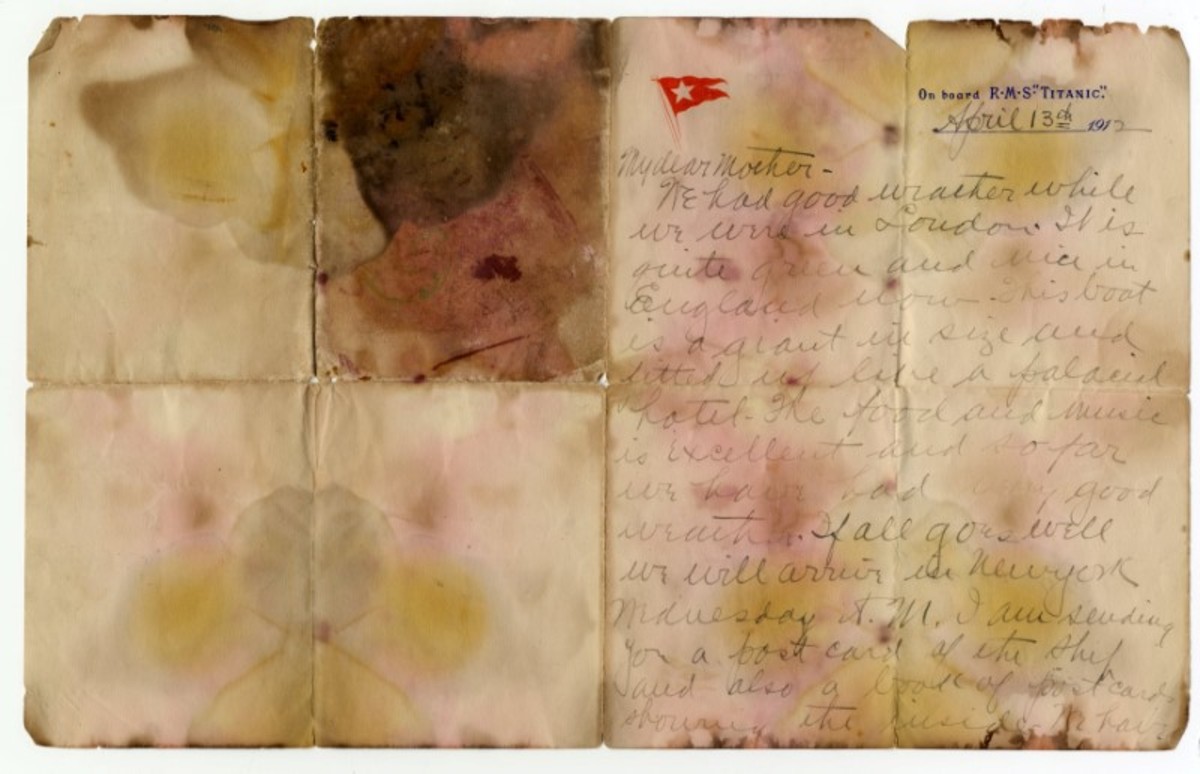 On board R·M·S· "TITANIC".
April 13th 1912
My dear Mother-
We had good weather while
we were in London. It is
quite green and nice in
England now. This boat
is a giant in size and
fitted up like a palacial
hotel. The food and music
is excellent and so far
we have had very good
weather. If all goes well
we will arrive in New york
Wednesday A.M. I am sending
you a post card of the ship
and also a book of post cards
showing the inside. We have